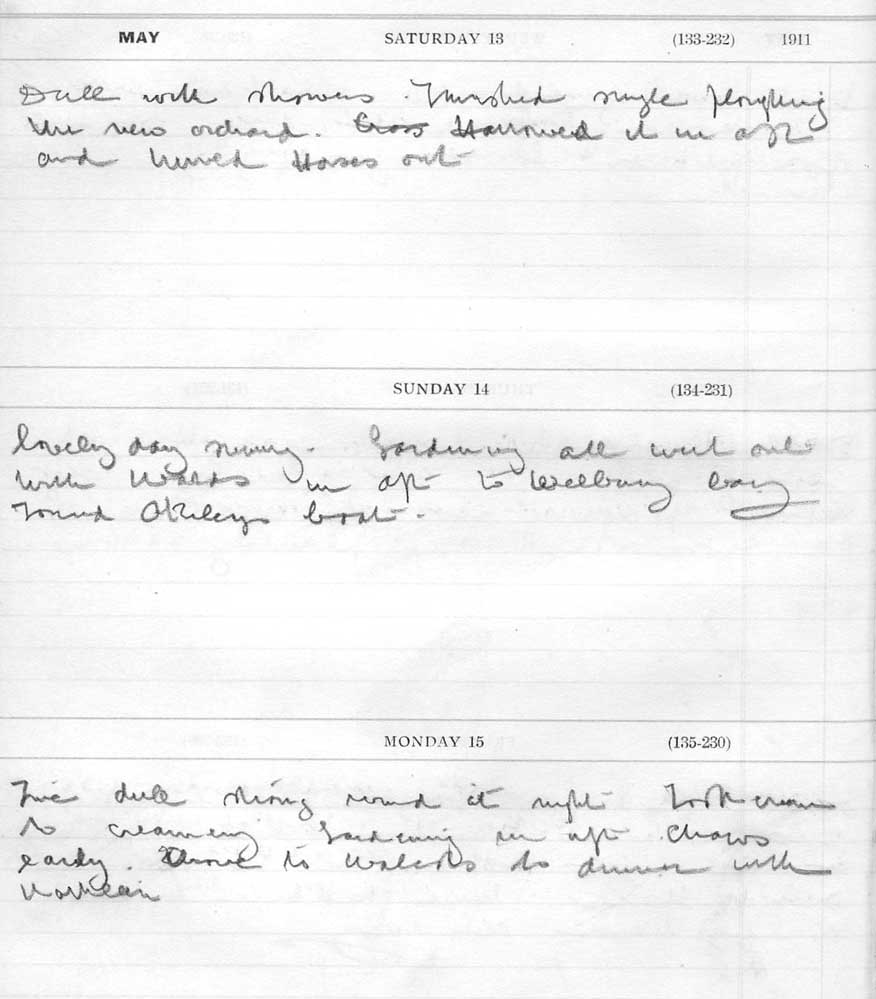 MAY SATURDAY 13 (133-232) 1911
Dull with showers. Finished single ploughing
the new orchard. Cross Harrowed it in aft
and turned Horses out
SUNDAY 14 (134-231)
lovely day sunny. Gardening all went out
with Walds in aft to Welbury bay
round Okileys boat.
MONDAY 15 (135-230)
Fine dull strong wind at night Took cream
to creamery Gardening in aft Chores
early. Drove to Walcots to dinner with